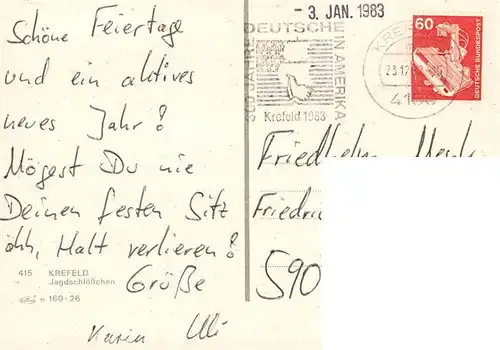 Schöne Feiertage
und ein aktives
neues Jahr!
Mögest Du nie
Deinen festen Sitz
öhh, Halt verlieren!
Größe
Karin Uli
415 KREFELD
Jagdschlößchen
n 160-26
- 3. JAN. 1983
300 JAHRE DEUTSCHE IN AMERIKA
Krefeld 1983
KREFELD
23.12
60
DEUTSCHE BUNDESPOST
Friedhelm
Friedric
590